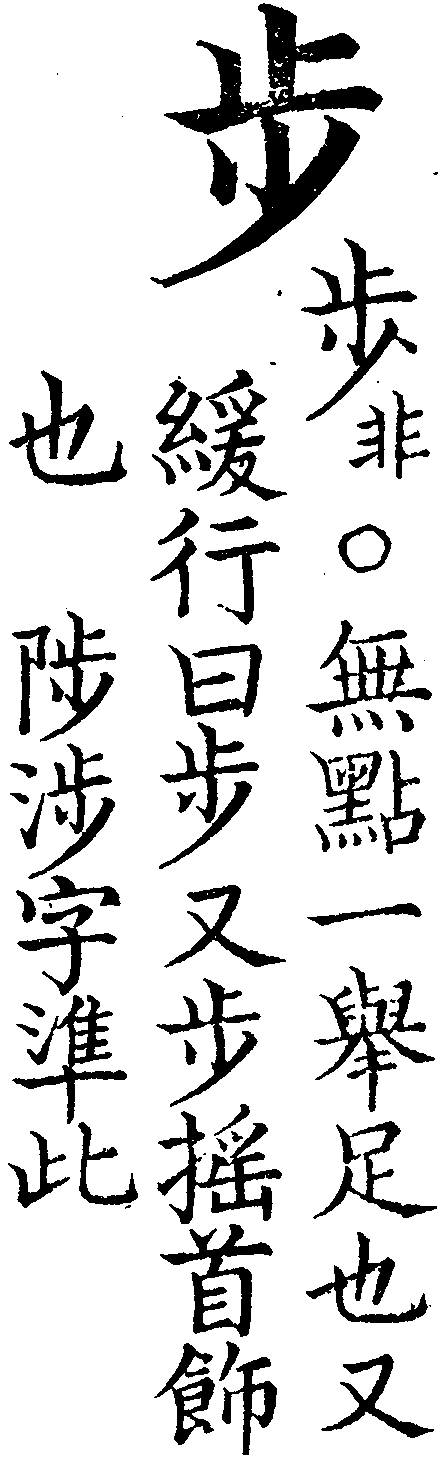 步
歩非○無點一舉足也又
緩行曰步又步摇首飾
也 陟涉字準此